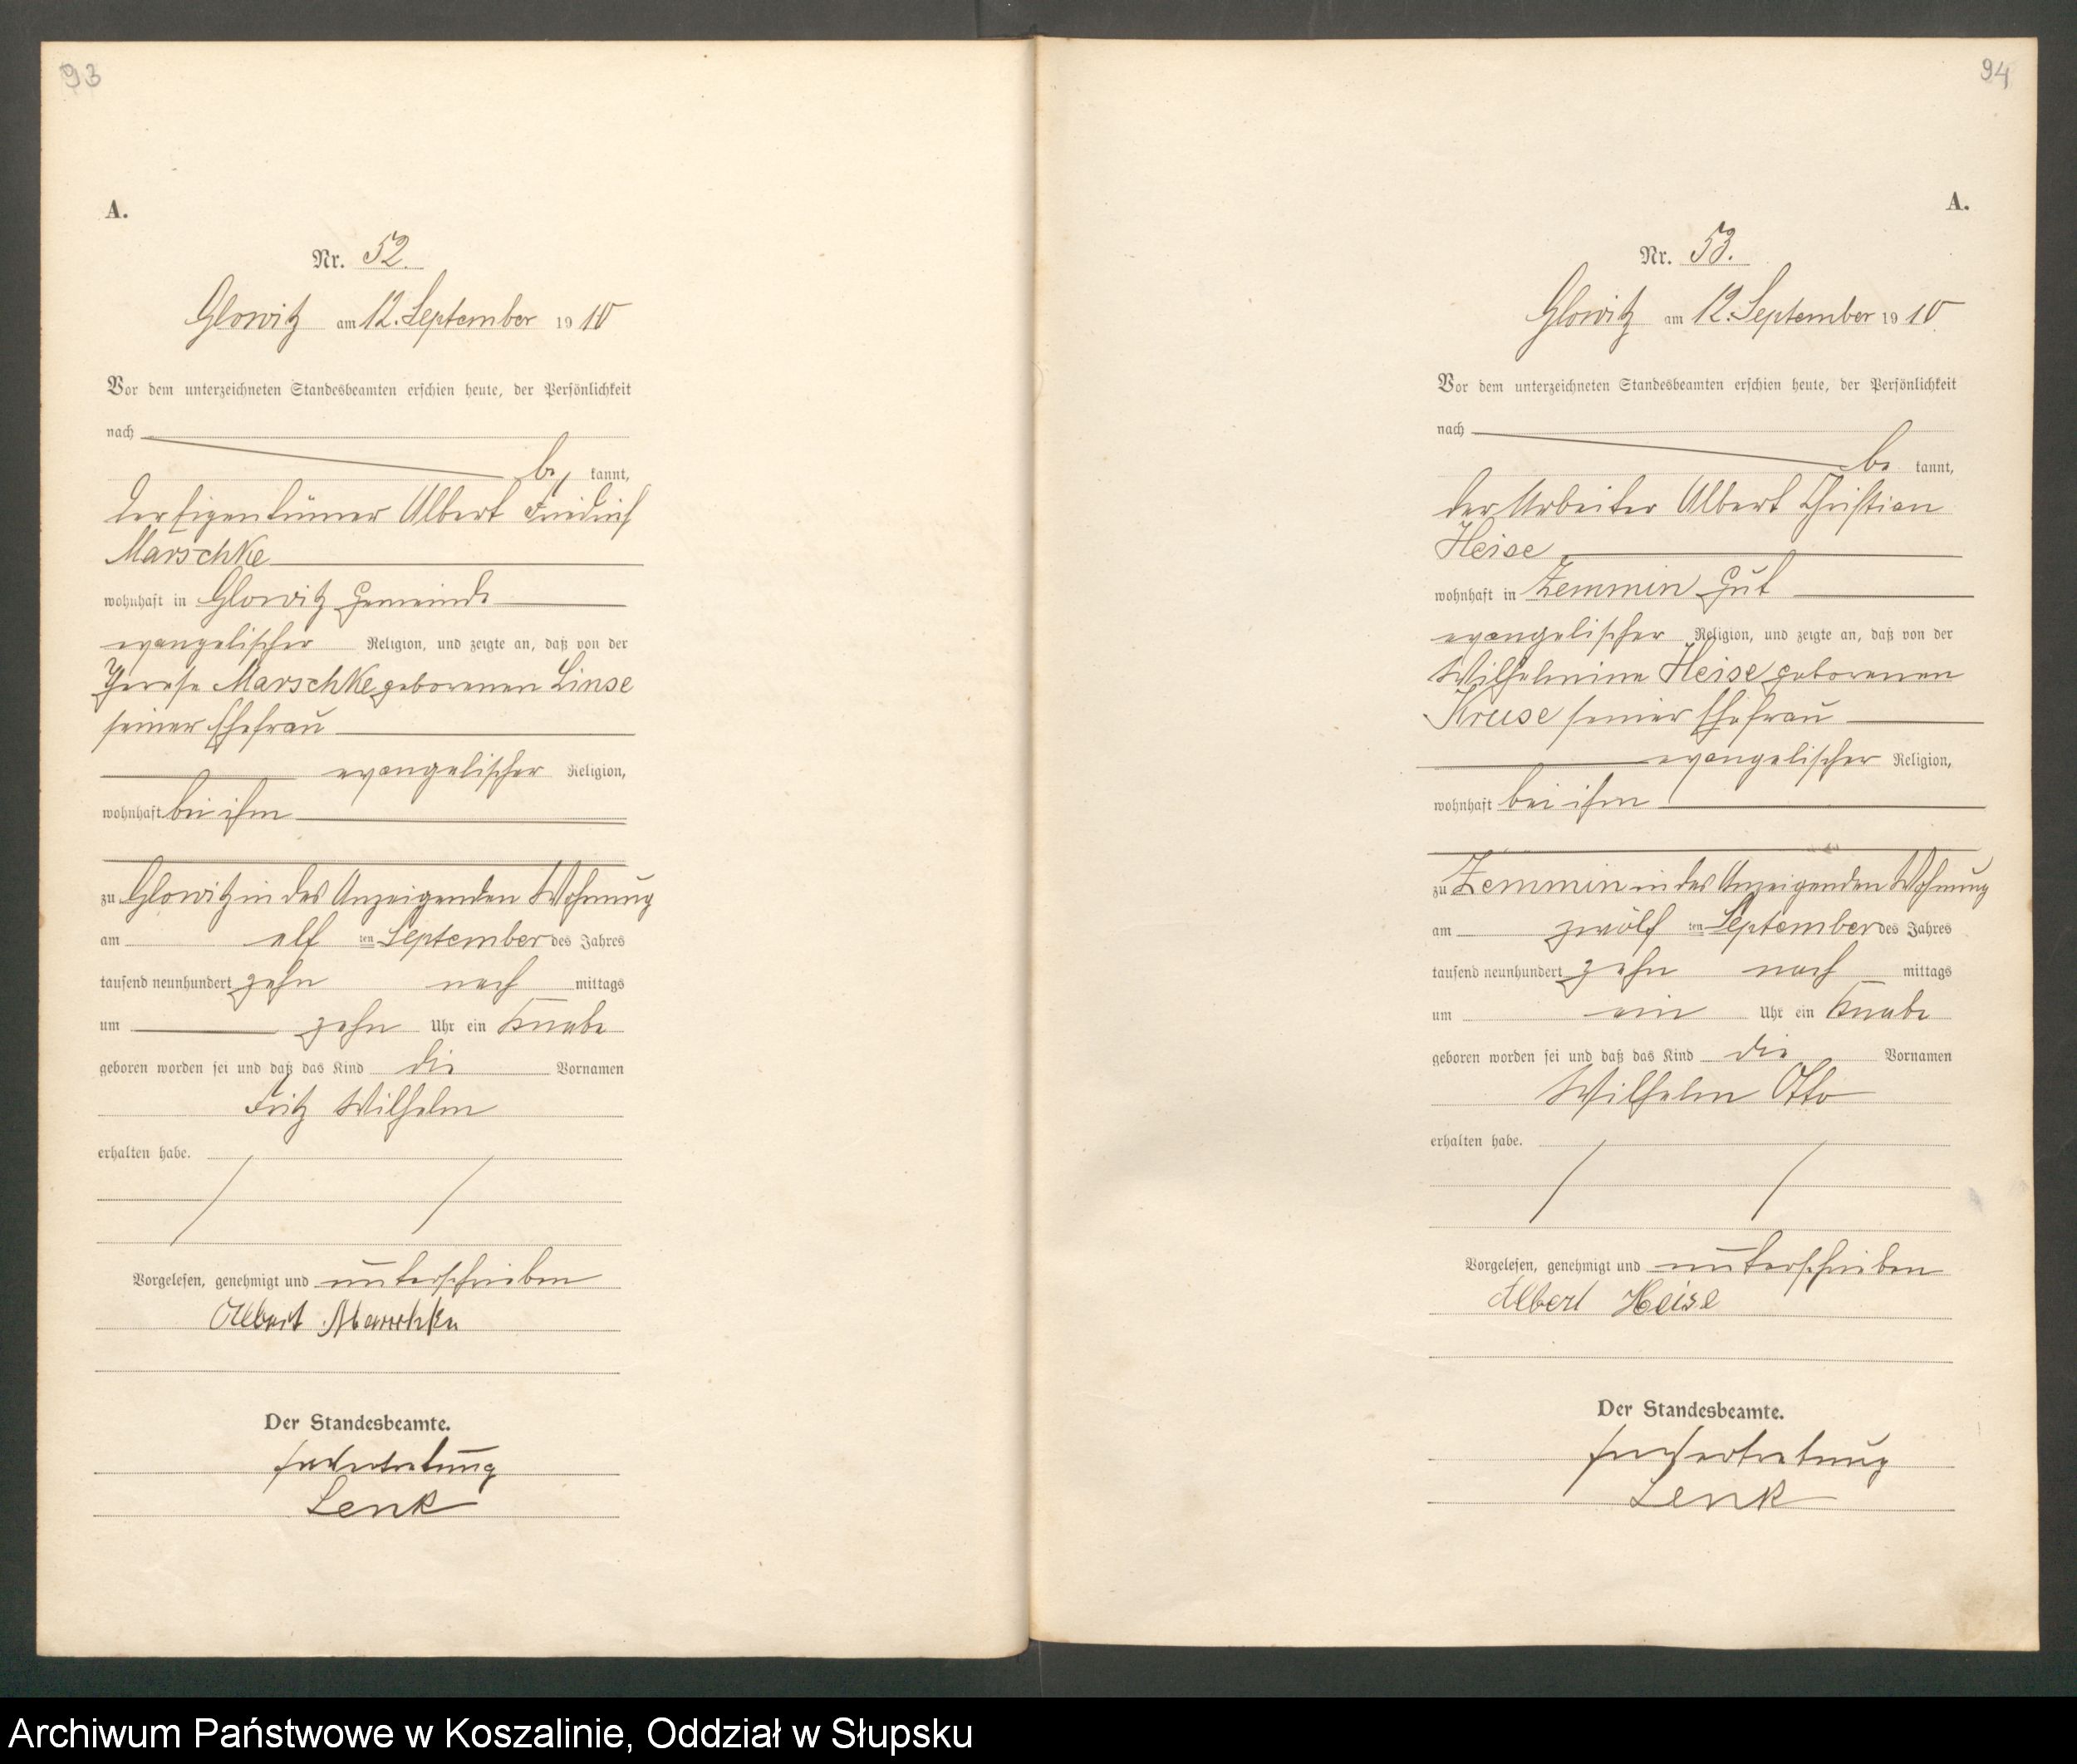 93
A.
Nr. 52.
Glowitz am 12. September 1910
Vor dem unterzeichneten Standesbeamten erschien heute, der Persönlichkeit
nach
be kannt,
der Eigentümer Albert Friedrich
Marschke
wohnhaft in Glowitz Gemeinde
evangelischer Religion, und zeigte an, daß von der
Marschke geborenen Linse
seiner Ehefrau
evangelischer Religion,
wohnhaft bei ihm
zu Glowitz in des Anzeigenden Wohnung
am elf ten September des Jahres
tausend neunhundert zehn nach mittags
um zehn Uhr ein Knabe
geboren worden sei und daß das Kind die Vornamen
Fritz Wilhelm
erhalten habe.
Vorgelesen, genehmigt und unterschrieben
Albert Marschke
Der Standesbeamte.
In Vertretung
Lenk
94
A.
Nr. 53.
Glowitz am 12. September 1910
Vor dem unterzeichneten Standesbeamten erschien heute, der Persönlichkeit
nach
be kannt,
der Arbeiter Albert Christian
Heise
wohnhaft in Zemmin Gut
evangelischer Religion, und zeigte an, daß von der
Wilhelmine Heise geborenen
Kruse seiner Ehefrau
evangelischer Religion,
wohnhaft bei ihm
zu Zemmin in des Anzeigenden Wohnung
am zwölf ten September des Jahres
tausend neunhundert zehn nach mittags
um ein Uhr ein Knabe
geboren worden sei und daß das Kind die Vornamen
Wilhelm Otto
erhalten habe.
Vorgelesen, genehmigt und unterschrieben
Albert Heise
Der Standesbeamte.
In Vertretung
Lenk
Archiwum Państwowe w Koszalinie, Oddział w Słupsku